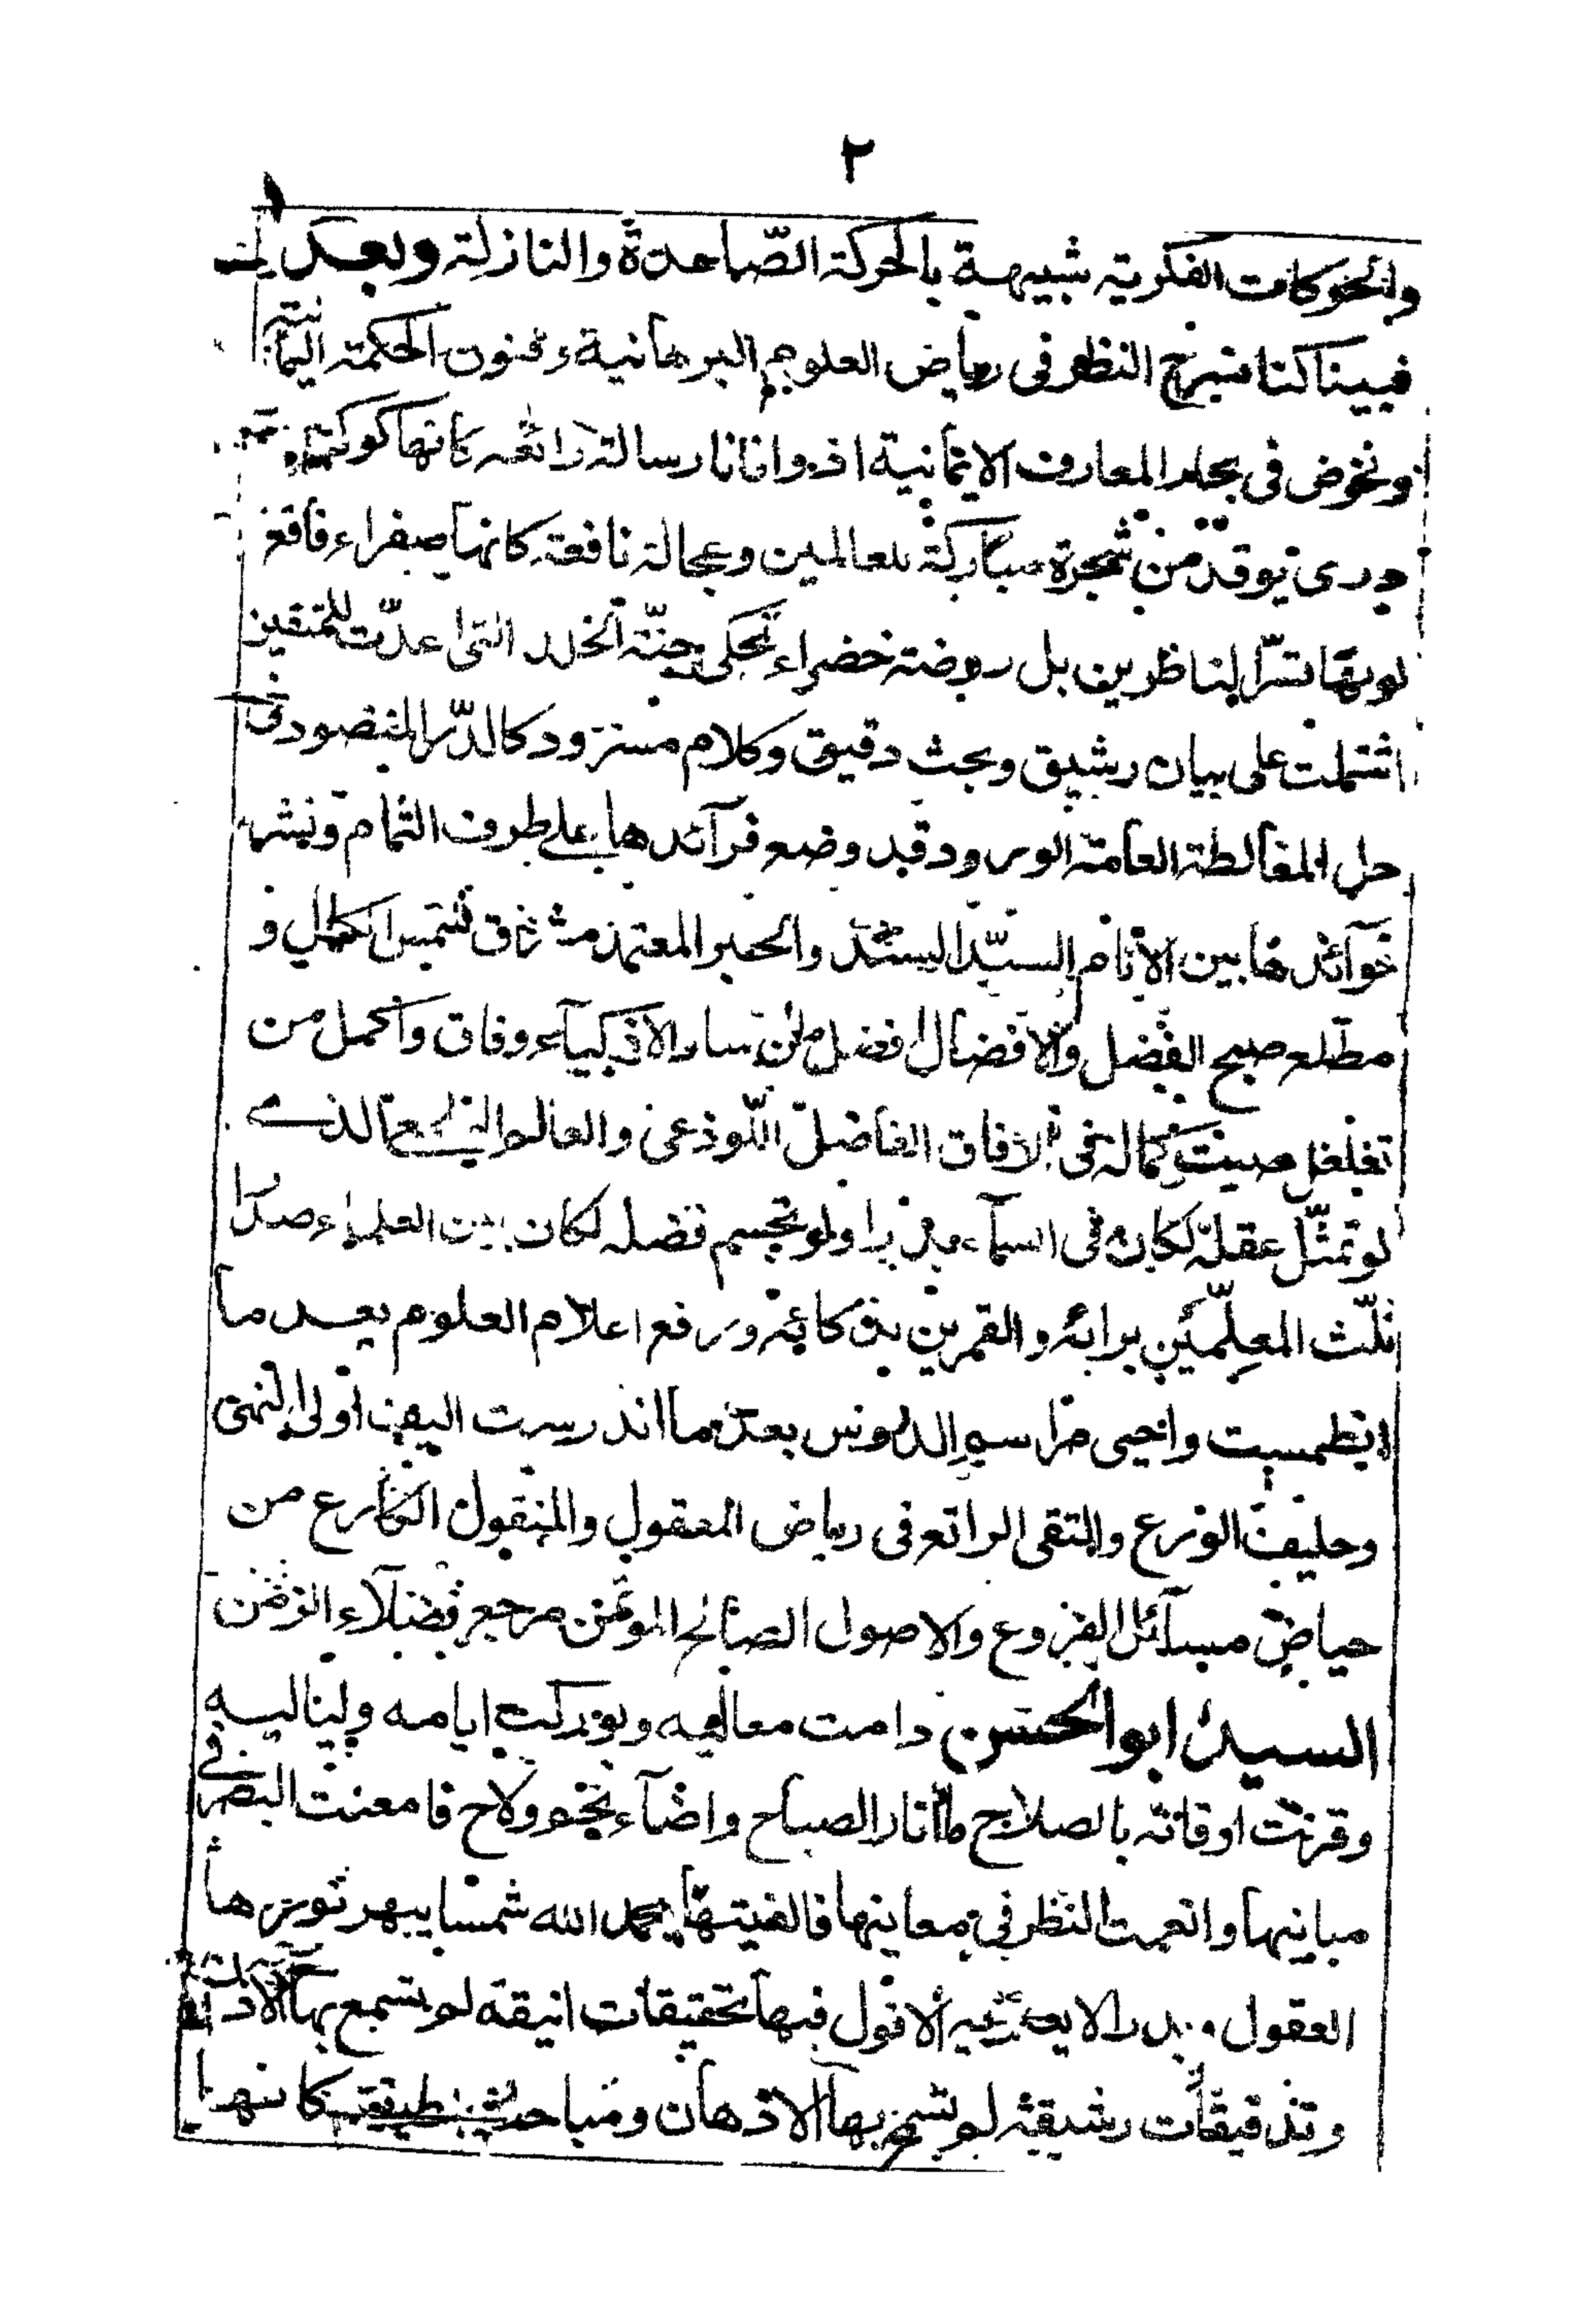 ٢
والحركات الفكرية شبيهة بالحركة الصّاعدة والنازلة وبعد
فبينا كنا نسرح النظر فى رياض العلوم البرهانية وفنون الحكمة اليمانية
ونخوض فى بحار المعارف الايمانية اذ واتانا رسالة رائعة كانها كوكب
درى توقد من شجرة مباركة للعالمين وعجالة نافعة كانها صفراء فاقع
لونها تسرّ الناظرين بل روضة خضراء تحكى جنّة الخلد التى اعدّت للمتقين
اشتملت على بيان رشيق وبحث دقيق وكلام مسرود كالدّر المنضود فى
حل المغالطة العامة الورود قد وضع فرآئدها على طرف الثمام ونشر
خوآئدها بين الانام السيّد السند والحبر المعتمد مشرق شمس الكمال و
مطلع صبح الفضل والافضال افضل من ساد الاذكيآء وفاق واكمل من
تغلغل صيت كماله فى الافاق الفاضل اللّوذعى والعالم الذى
لو تمثّل عقله لكان فى السمآء بدرا ولو تجسم فضله لكان بين العلماء صدرا
ثلّث المعلّمين برايه والقمرين بذكائه ورفع اعلام العلوم بعد ما
انطمست واحيى مراسم الدروس بعد ما اندرست اليف اولى النهى
وحليف الورع والتقى الراتع فى رياض المعقول والمنقول الكارع من
حياض مسآئل الفروع والاصول الصالح الموتمن مرجع فضلآء الزمن
السيد ابو الحسن دامت معاليه وبوركت ايامه ولياليه
وقرنت اوقاته بالصلاح ما انار الصباح واضآء نجم ولاح فامعنت البصر فى
مبانيها وانعمت النظر فى معانيها فالفيتها بحمد الله شمسا يبهر نورها
العقول وبدرا لا يعتريه الافول فيها تحقيقات انيقة لم تسمع بها الآذان
وتدقيقات رشيقة لم تسمح بها الاذهان ومباحث كانها